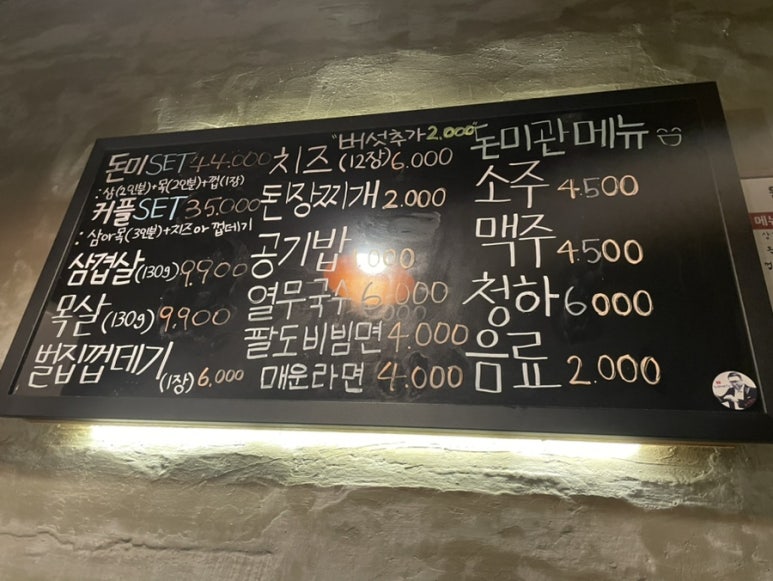 돈미SET 44.000
: 삼(2인분)+목(2인분)+껍(1장)
커플SET 35.000
: 삼or목(3인분)+치즈or껍데기
삼겹살(130g) 9.900
목살(130g) 9.900
벌집껍데기(1장) 6.000
"버섯추가 2.000"
치즈(12장) 6.000
된장찌개 2.000
공기밥 1.000
열무국수 6.000
팔도비빔면 4.000
매운라면 4.000
돈미관 메뉴
소주 4.500
맥주 4.500
청하 6000
음료 2.000